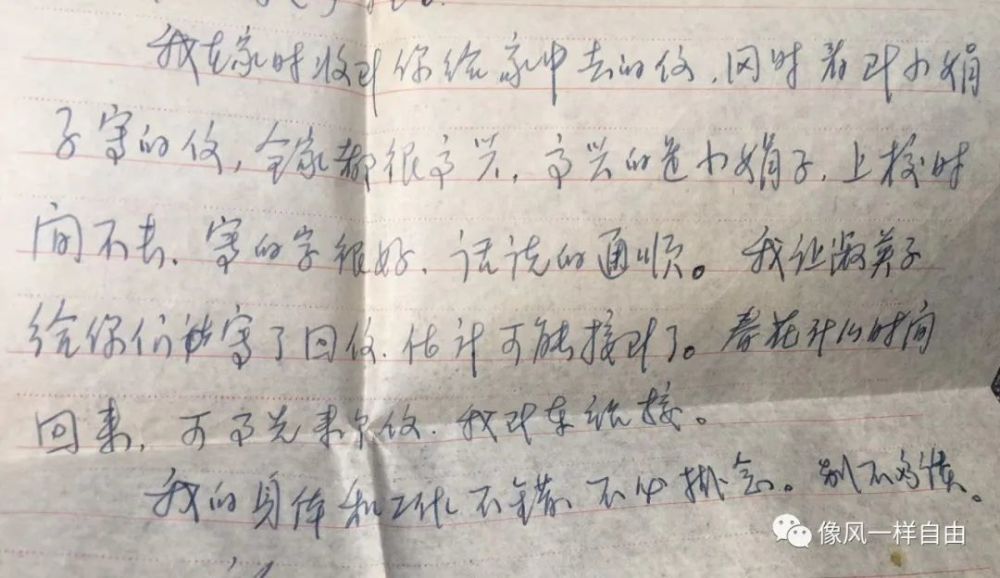 我在家时收到你给家中去的信，同时看到小娟
子写的信，全家都很高兴，高兴的是小娟子，上校时
间不长，写的字很好，话说的通顺。我让淑英子
给你们写了回信，估计可能接到了。春花什么时间
回来，可事先来个信，我到车站接。
我的身体和工作不错不必挂念。别不多谈。
像风一样自由